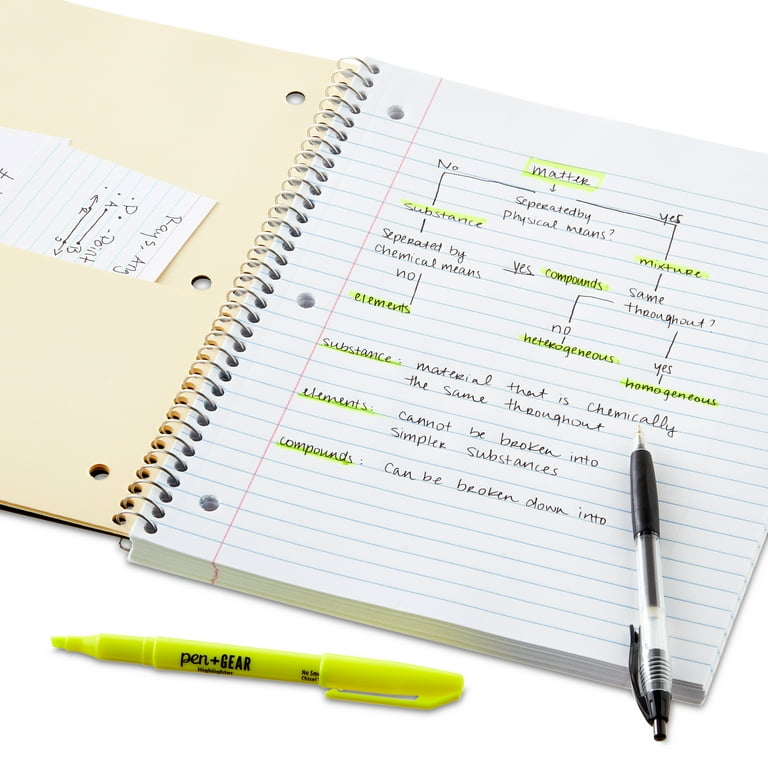 Matter
No
Seperated by
physical means?
yes
substance
mixture
Seperated by
chemical means
yes compounds
same
throughout?
no
elements
no
heterogeneous
yes
homogeneous
substance: material that is chemically
the same throughout
elements: cannot be broken into
simpler substances
compounds: can be broken down into
Rays, Ang
• D • - Point
A
B
pen+GEAR
Highlighter
No Sm
Chisel